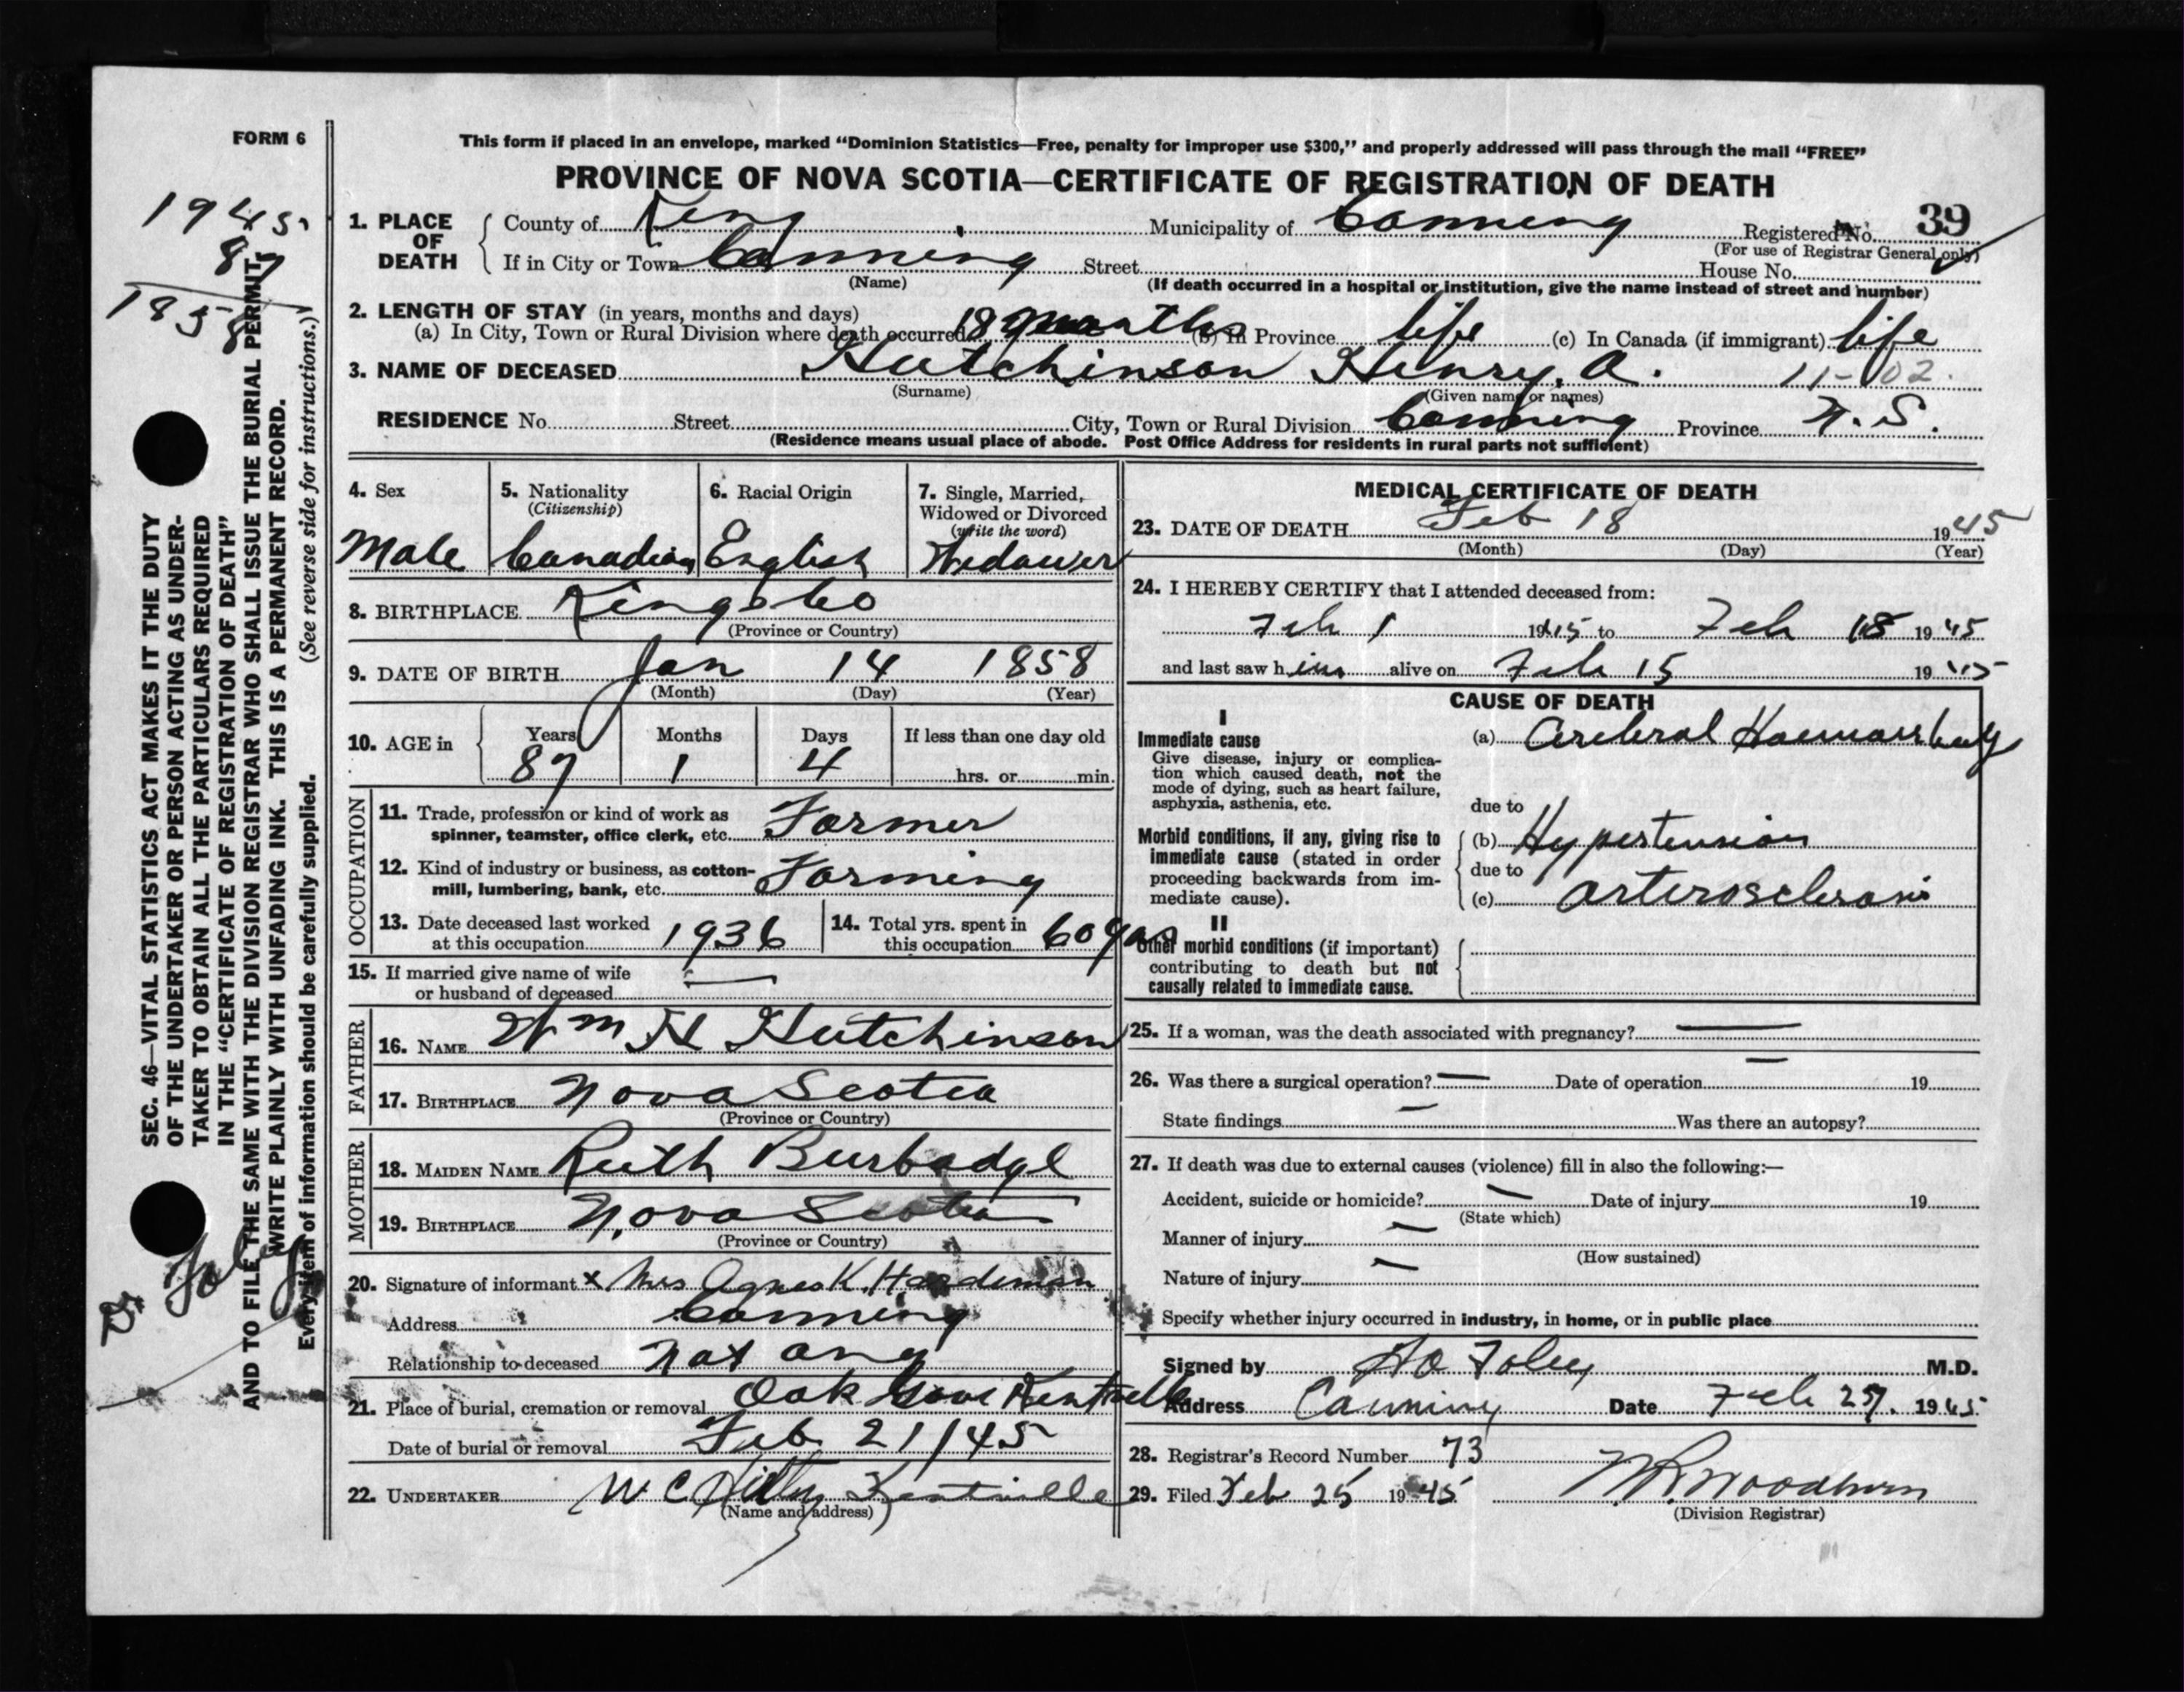 FORM 6
This form if placed in an envelope, marked “Dominion Statistics—Free, penalty for improper use $300,” and properly addressed will pass through the mail “FREE”
PROVINCE OF NOVA SCOTIA—CERTIFICATE OF REGISTRATION OF DEATH
1945
87
1858
1. PLACE OF DEATH
County of King Municipality of Canning Registered No. 39
(For use of Registrar General only)
If in City or Town Canning Street House No.
(Name) (If death occurred in a hospital or institution, give the name instead of street and number)
2. LENGTH OF STAY (in years, months and days)
(a) In City, Town or Rural Division where death occurred 18 months (b) In Province life (c) In Canada (if immigrant) life
3. NAME OF DECEASED Hutchinson Henry. A. 11-02
(Surname) (Given name or names)
RESIDENCE No. Street City, Town or Rural Division Canning Province N.S.
(Residence means usual place of abode. Post Office Address for residents in rural parts not sufficient)
4. Sex
Male
5. Nationality
(Citizenship)
Canadian
6. Racial Origin
English
7. Single, Married,
Widowed or Divorced
(write the word)
Widower
8. BIRTHPLACE Kings Co
(Province or Country)
9. DATE OF BIRTH Jan 14 1858
(Month) (Day) (Year)
10. AGE in Years Months Days If less than one day old
87 1 4 hrs. or min.
OCCUPATION
11. Trade, profession or kind of work as
spinner, teamster, office clerk, etc. Farmer
12. Kind of industry or business, as cotton-
mill, lumbering, bank, etc. Farming
13. Date deceased last worked
at this occupation 1936
14. Total yrs. spent in
this occupation 60 yrs
15. If married give name of wife
or husband of deceased —
FATHER
16. NAME Wm H Hutchinson
17. BIRTHPLACE Nova Scotia
(Province or Country)
MOTHER
18. MAIDEN NAME Ruth Burbadge
19. BIRTHPLACE Nova Scotia
(Province or Country)
20. Signature of informant x Mrs Agnes K. Hardiman
Address Canning
Relationship to deceased Not any
21. Place of burial, cremation or removal Oak Grove Kentville
Date of burial or removal Feb 21/45
22. UNDERTAKER W C Kentville
(Name and address)
MEDICAL CERTIFICATE OF DEATH
23. DATE OF DEATH Feb 18 1945
(Month) (Day) (Year)
24. I HEREBY CERTIFY that I attended deceased from:
Feb 1 1945 to Feb 18 1945
and last saw him alive on Feb 15 1945
CAUSE OF DEATH
I
Immediate cause
Give disease, injury or complica-
tion which caused death, not the
mode of dying, such as heart failure,
asphyxia, asthenia, etc.
(a) Cerebral Haemorrhage
due to
Morbid conditions, if any, giving rise to
immediate cause (stated in order
proceeding backwards from im-
mediate cause).
(b) Hypertension
due to
(c) arterosclerosis
II
Other morbid conditions (if important)
contributing to death but not
causally related to immediate cause.
25. If a woman, was the death associated with pregnancy? —
26. Was there a surgical operation? — Date of operation — 19
State findings — Was there an autopsy?
27. If death was due to external causes (violence) fill in also the following:—
Accident, suicide or homicide? — Date of injury 19
(State which)
Manner of injury —
(How sustained)
Nature of injury —
Specify whether injury occurred in industry, in home, or in public place
Signed by Foley M.D.
Address Canning Date Feb 1945
28. Registrar's Record Number 73
29. Filed Feb 25 1945 Woodburn
(Division Registrar)
SEC. 46—VITAL STATISTICS ACT MAKES IT THE DUTY
OF THE UNDERTAKER OR PERSON ACTING AS UNDER-
TAKER TO OBTAIN ALL THE PARTICULARS REQUIRED
IN THE “CERTIFICATE OF REGISTRATION OF DEATH”
AND TO FILE THE SAME WITH THE DIVISION REGISTRAR WHO SHALL ISSUE THE BURIAL PERMIT.
WRITE PLAINLY WITH UNFADING INK. THIS IS A PERMANENT RECORD.
Every item of information should be carefully supplied. (See reverse side for instructions.)
Dr Foley